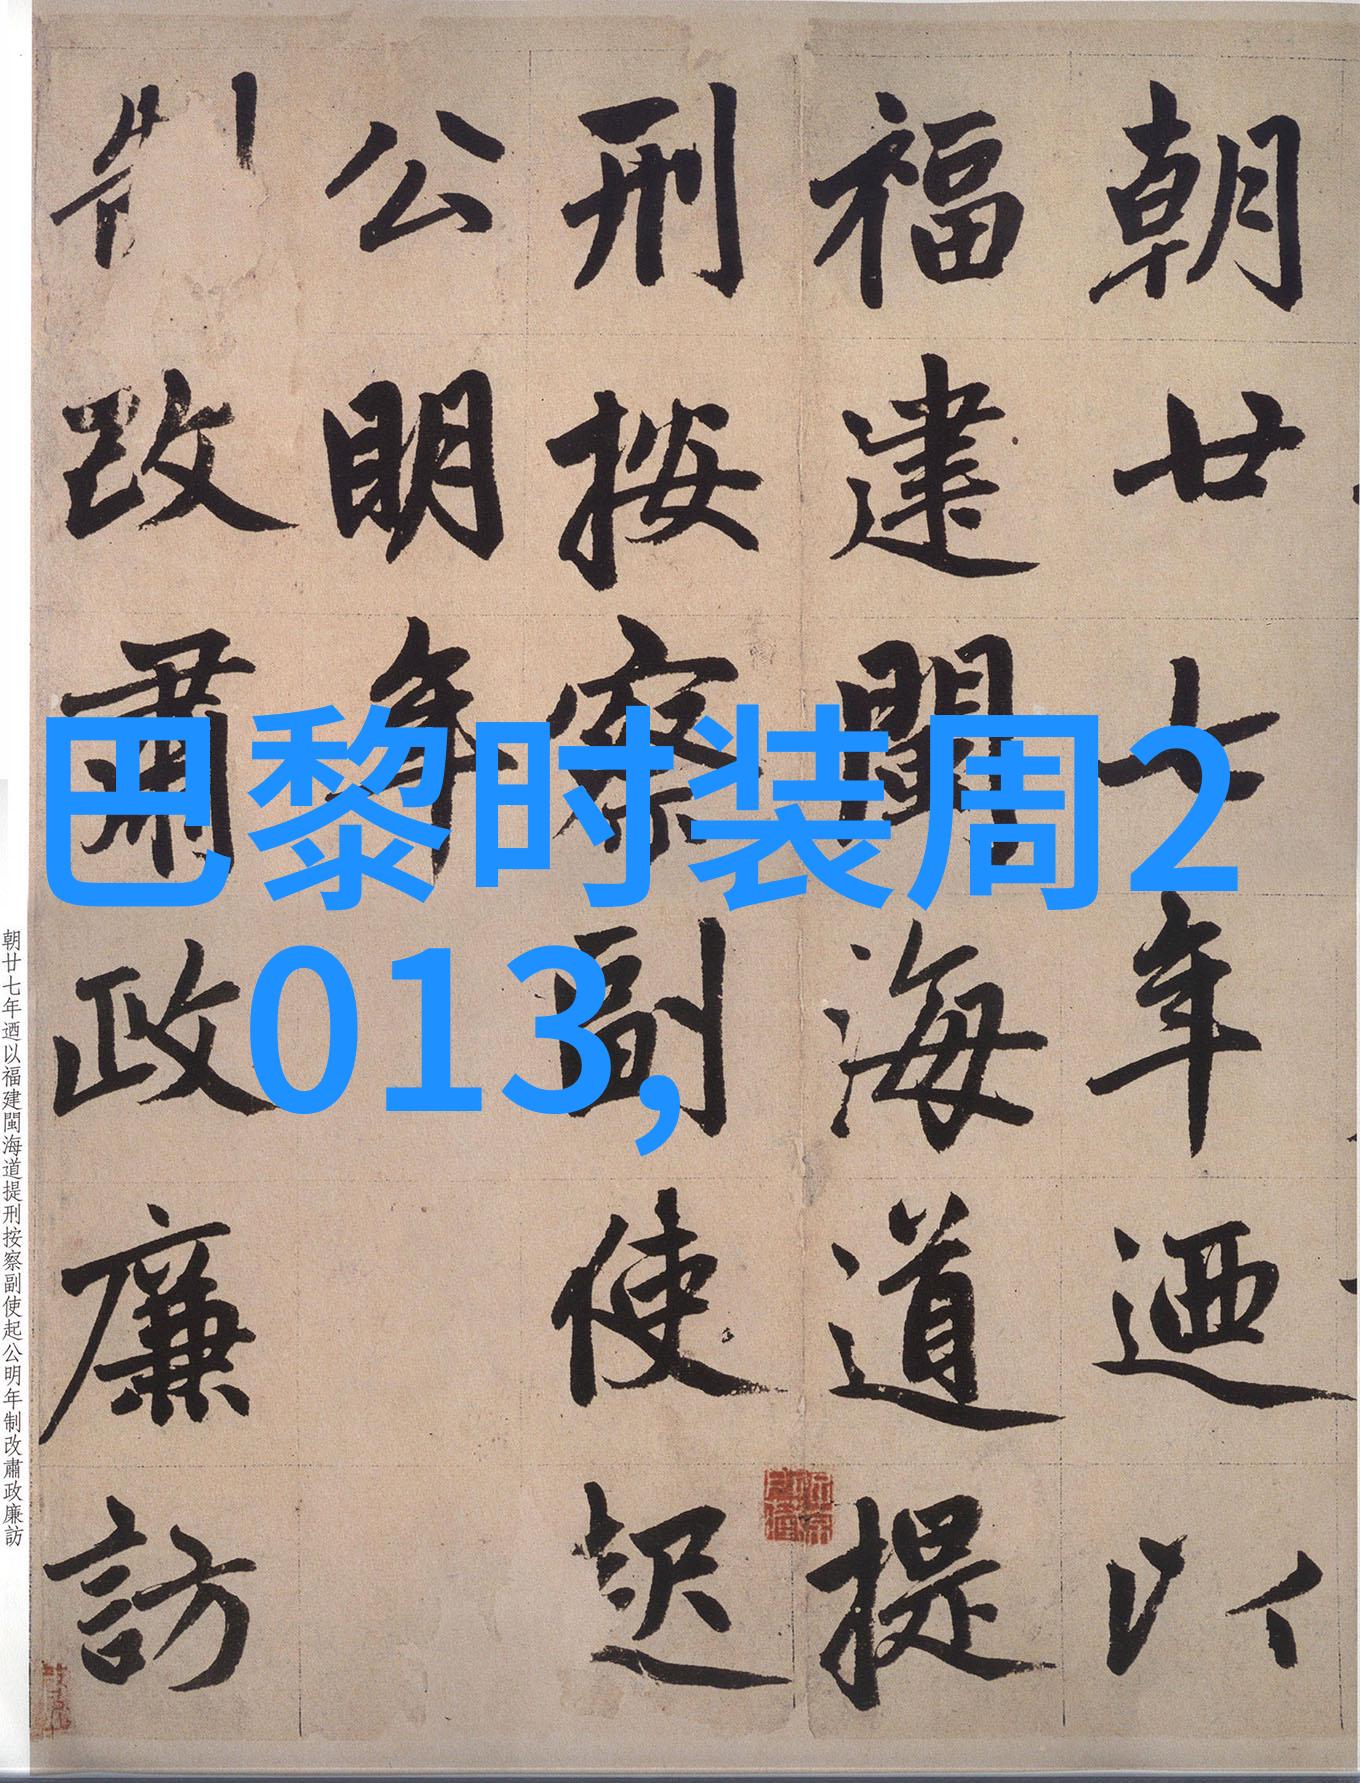 朝廿七年迺以
福建閩海道提
刑按察副使起
公明年
制改肅政廉訪
巴黎时装周2
013,
朝廿七年迺以福建閩海道提刑按察副使起公明年制改肅政廉訪